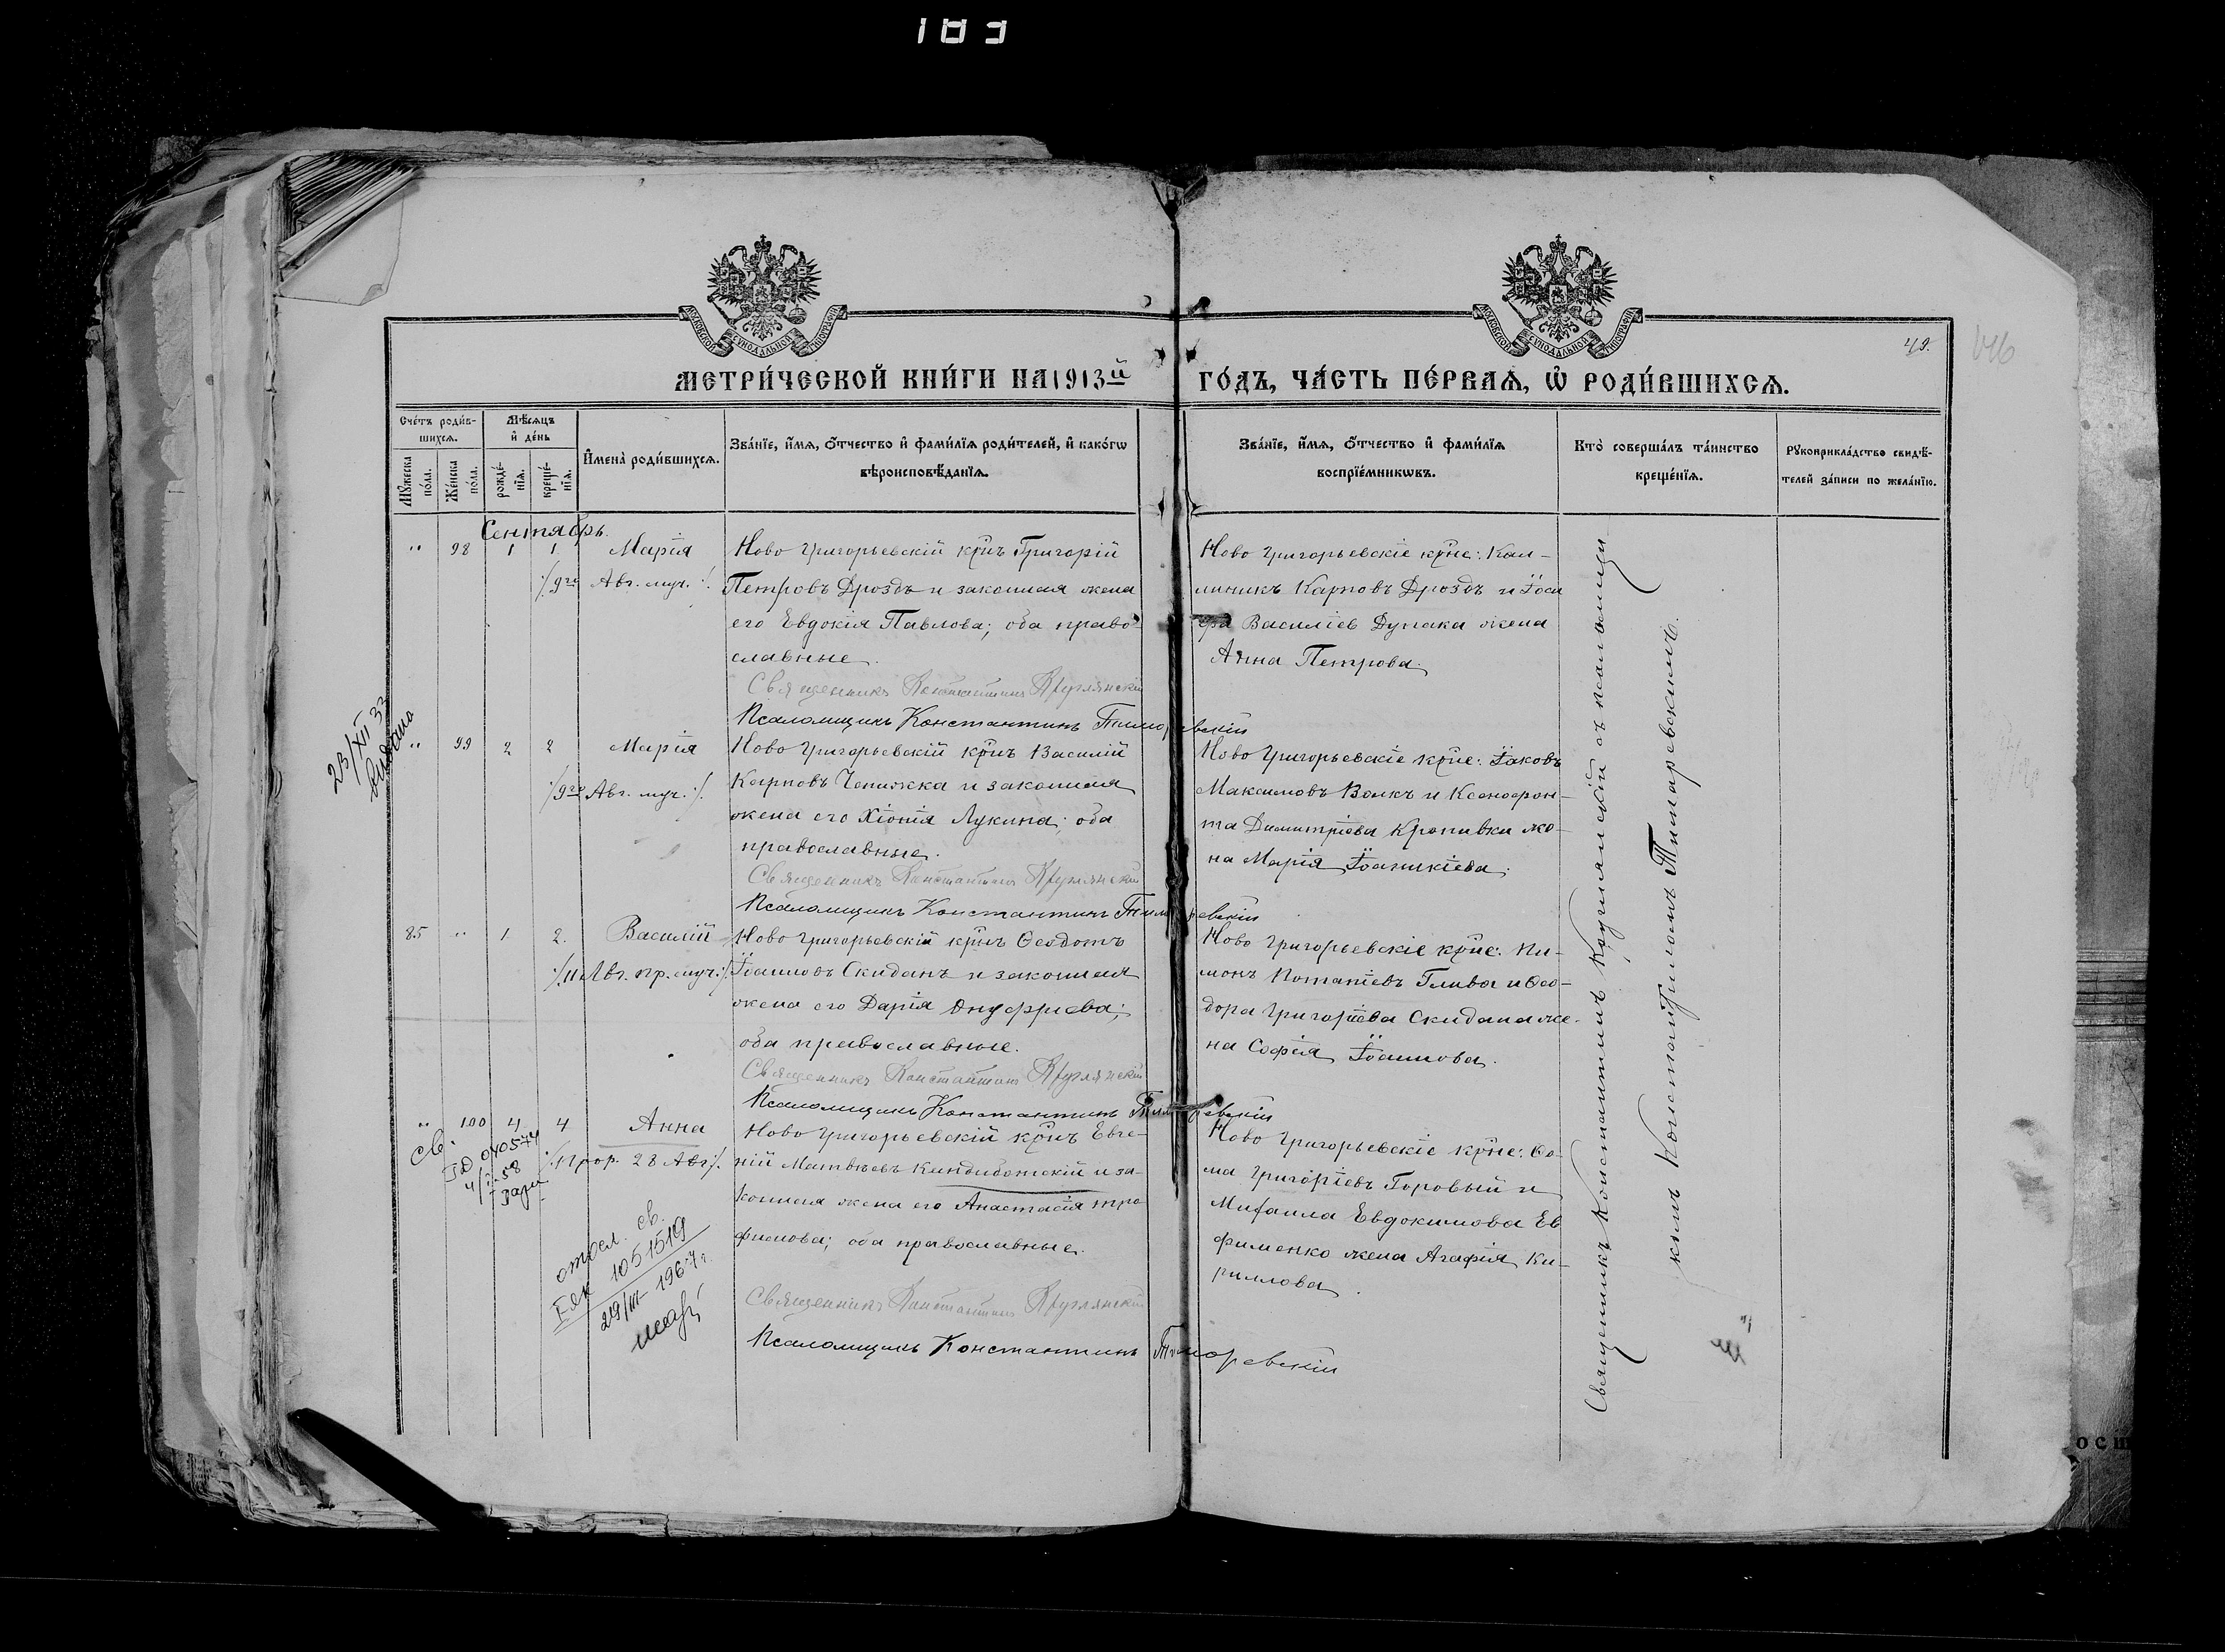 183
МОСКОВСКОЙ СѴНОДАЛЬНОЙ ТИПОГРАФІИ
МОСКОВСКОЙ СѴНОДАЛЬНОЙ ТИПОГРАФІИ
49.
МЕТРИ́ЧЕСКОЙ КНИ́ГИ НА 1913й
ГО́ДЪ, ЧА́СТЬ ПЕ́РВАѦ, Ѡ҆ РОДИ́ВШИХСѦ.
Сче́тъ роди́в-
шихсѧ.
Мѣ́сѧцъ
и҆ де́нь
Мꙋ́жеска
по́ла.
Же́нска
по́ла.
рожде́-
нїѧ.
креще́-
нїѧ.
И҆мена̀ роди́вшихсѧ.
Зва́нїе, и҆́мѧ, ѻ҆́тчество и҆ фами́лїѧ роди́телей, и҆ како́гѡ
вѣроисповѣ́данїѧ.
Зва́нїе, и҆́мѧ, ѻ҆́тчество и҆ фами́лїѧ
воспрїе́мникѡвъ.
Кто̀ соверша́лъ та́инство
креще́нїѧ.
Рꙋкоприкла́дство свидѣ́-
телей за́писи по жела́нїю.
Сентябрь.
" 98 1 1 Марія
/:9го Авг. муч.:/
Ново Григорьевскій кр̃нъ Григорій
Петровъ Дроздъ и законная жена
его Евдокія Павлова; оба право-
славные.
Священникъ Константинъ Круглянскій
Псаломщикъ Константинъ Тимаревскій
Ново Григорьевскіе кр̃не: Кал-
линикъ Карповъ Дроздъ и Іоси
фа Василіев Дупака жена
Анна Петрова.
23/XII 33
видано
" 99 2 2 Марія
/:9го Авг. муч.:/
Ново Григорьевскій кр̃нъ Василій
Карповъ Чепижка и законная
жена его Хіонія Лукина; оба
православные.
Священникъ Константинъ Круглянскій
Псаломщикъ Константинъ Тимаревскій
Ново Григорьевскіе кр̃не: Іаковъ
Максимовъ Волкъ и Ксенофон-
та Димитріева Кропивки же-
на Марія Іоаникіева.
85 " 1 2. Василій
/:11 Авг. пр. муч.:/
Ново Григорьевскій кр̃нъ Ѳеодотъ
Іоанновъ Скиданъ и законная
жена его Дарія Онуфріева;
оба православные.
Священникъ Константинъ Круглянскій
Псаломщикъ Константинъ Тимаревскій
Ново Григорьевскіе кр̃не: Пи-
монъ Потапіевъ Глива и Ѳео-
дора Григоріева Скидана же-
на Софія Іоаннова.
" 100 4 4 Анна
/:Прор. 28 Авг:/.
Ново Григорьевскій кр̃нъ Евге-
ній Матвѣевъ Киндиботскій и за-
конная жена его Анастасія Тро
фимова; оба православные.
Священникъ Константинъ Круглянскій
Псаломщикъ Константинъ Тимаревскій
Ново Григорьевскіе кр̃не: Ѳо-
ма Григоріевъ Горовый и
Михаила Евдокимова Ев
фименко жена Агафія Ки-
риллова.
св.
040574
св.
1051519
29/III-1967г.
Священникъ Константинъ Круглянскій съ псаломщи
комъ Константиномъ Тимаревскимъ.